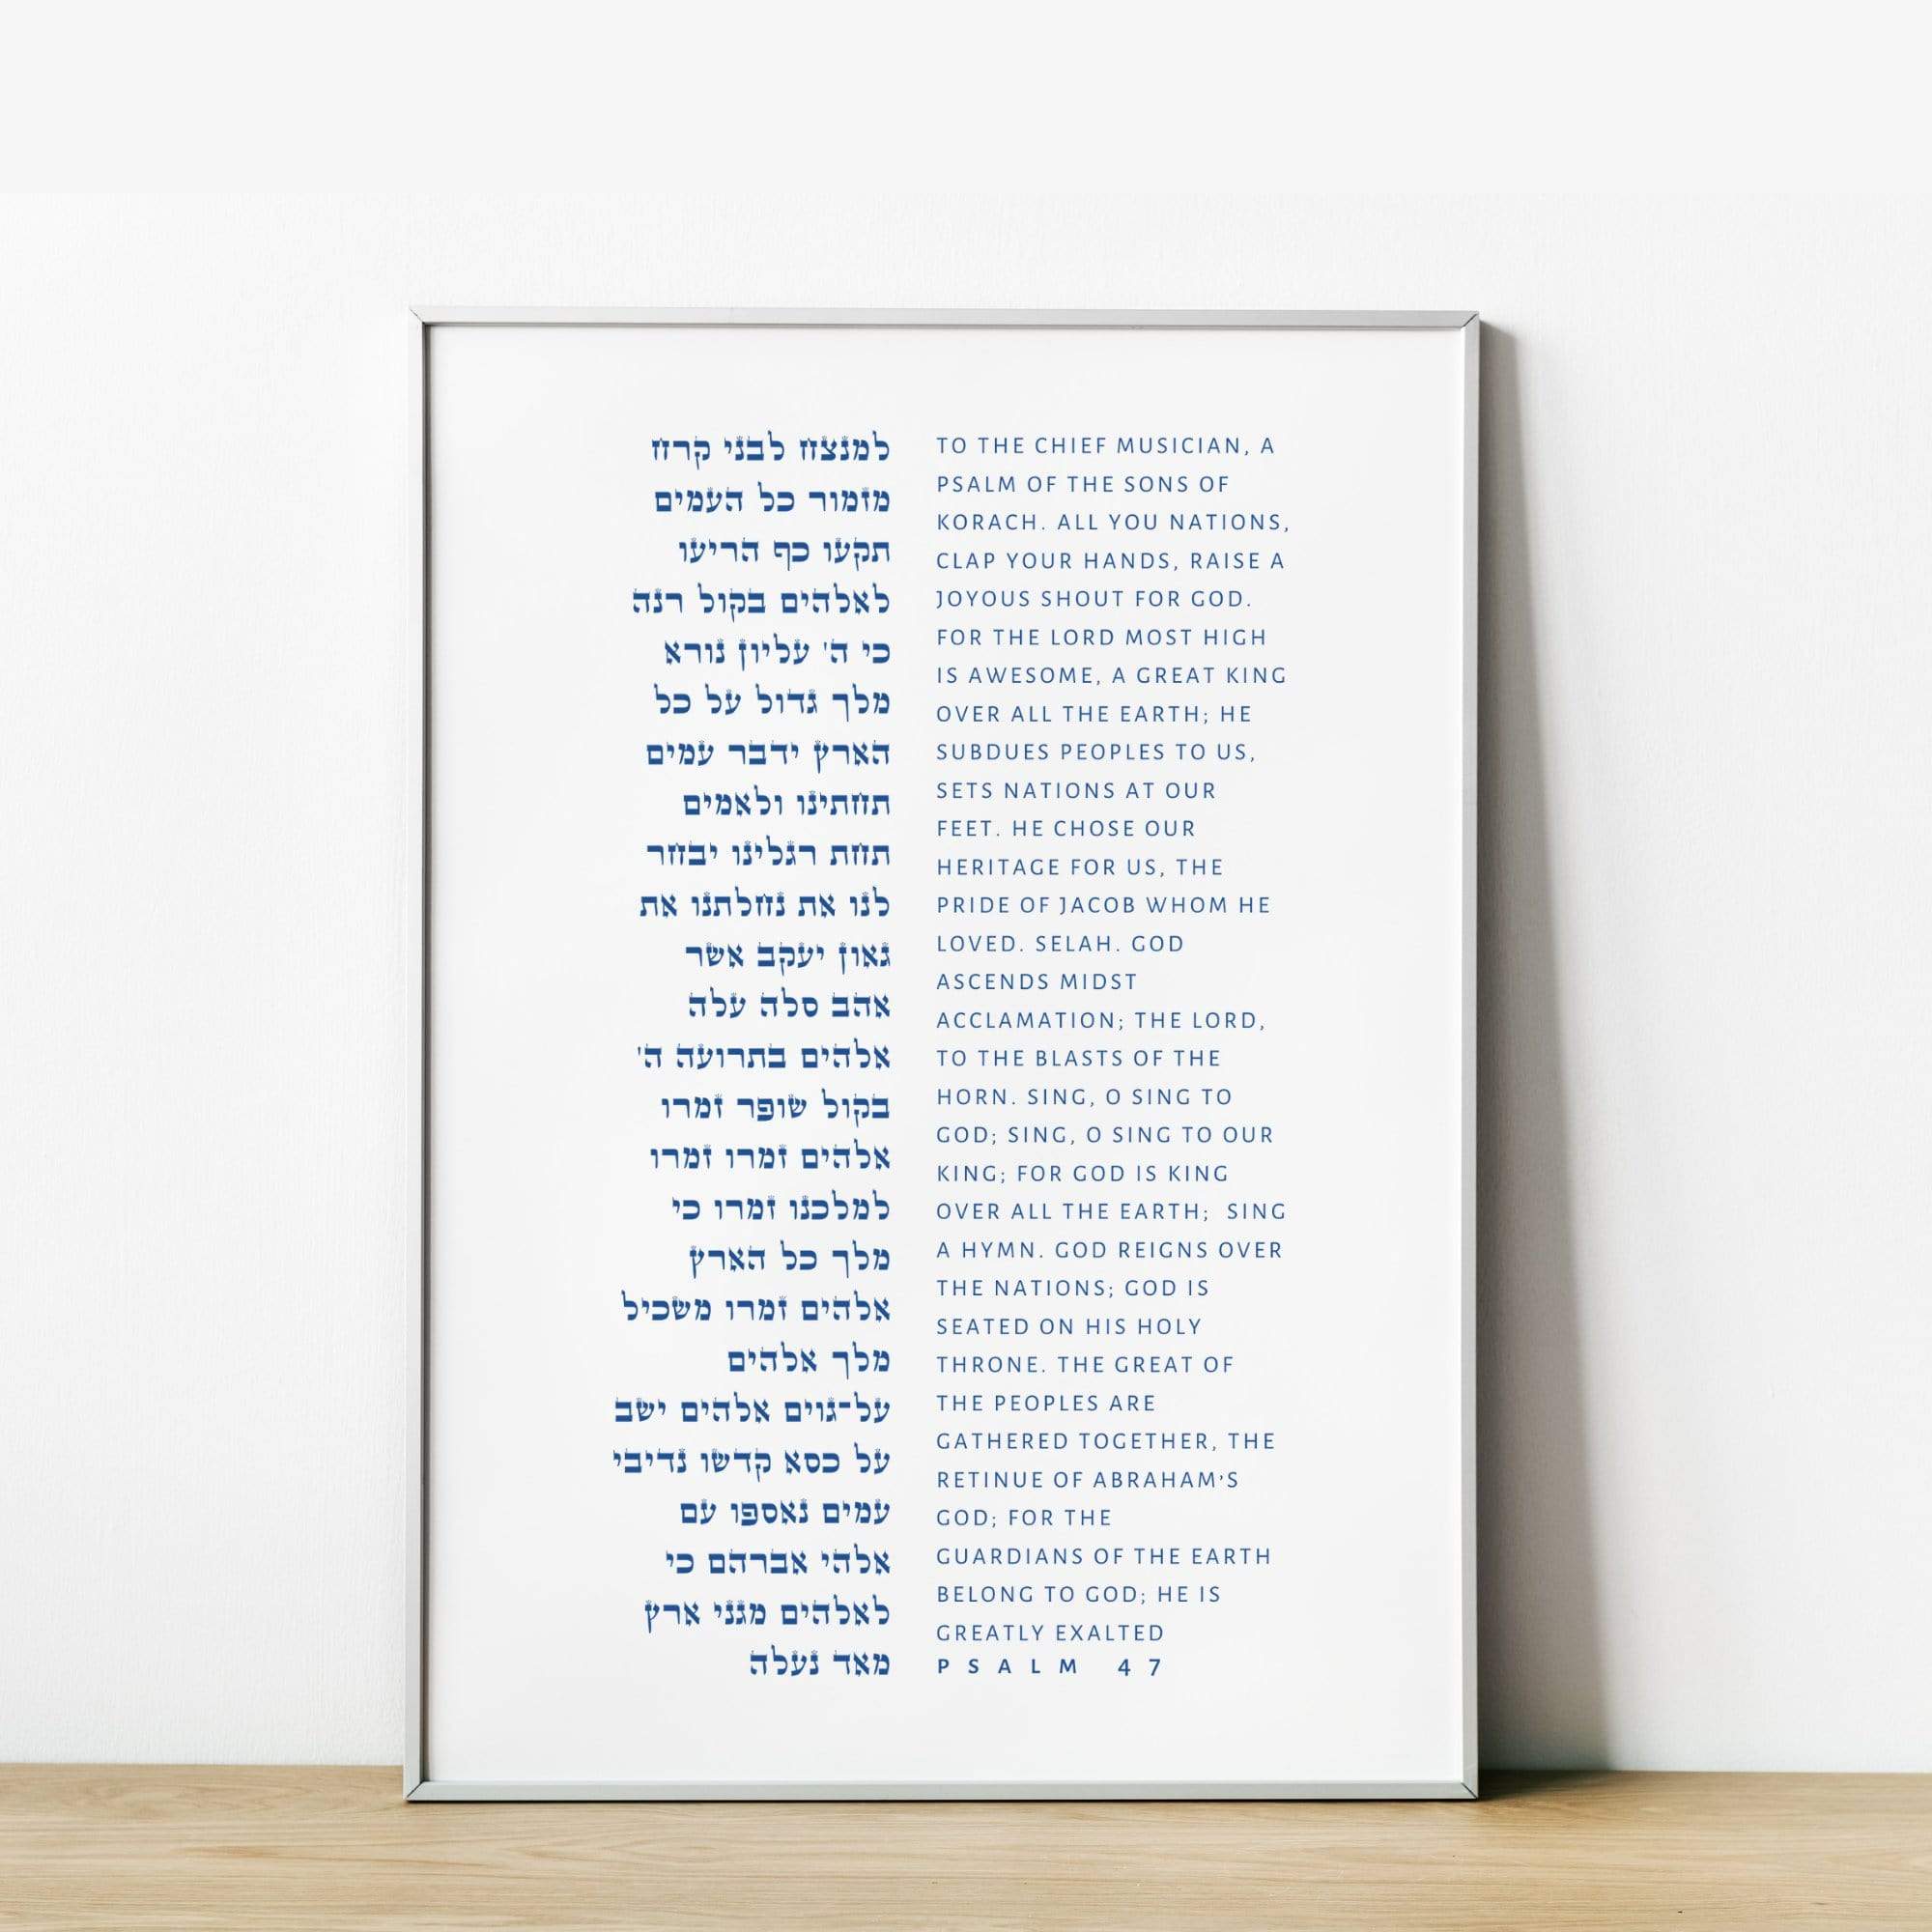 למנצח לבני קרח
מזמור כל העמים
תקעו כף הריעו
לאלהים בקול רנה
כי ה' עליון נורא
מלך גדול על כל
הארץ ידבר עמים
תחתינו ולאמים
תחת רגלינו יבחר
לנו את נחלתנו את
גאון יעקב אשר
אהב סלה עלה
אלהים בתרועה ה'
בקול שופר זמרו
אלהים זמרו זמרו
למלכנו זמרו כי
מלך כל הארץ
אלהים זמרו משכיל
מלך אלהים
על־גוים אלהים ישב
על כסא קדשו נדיבי
עמים נאספו עם
אלהי אברהם כי
לאלהים מגני ארץ
מאד נעלה
TO THE CHIEF MUSICIAN, A
PSALM OF THE SONS OF
KORACH. ALL YOU NATIONS,
CLAP YOUR HANDS, RAISE A
JOYOUS SHOUT FOR GOD.
FOR THE LORD MOST HIGH
IS AWESOME, A GREAT KING
OVER ALL THE EARTH; HE
SUBDUES PEOPLES TO US,
SETS NATIONS AT OUR
FEET. HE CHOSE OUR
HERITAGE FOR US, THE
PRIDE OF JACOB WHOM HE
LOVED. SELAH. GOD
ASCENDS MIDST
ACCLAMATION; THE LORD,
TO THE BLASTS OF THE
HORN. SING, O SING TO
GOD; SING, O SING TO OUR
KING; FOR GOD IS KING
OVER ALL THE EARTH; SING
A HYMN. GOD REIGNS OVER
THE NATIONS; GOD IS
SEATED ON HIS HOLY
THRONE. THE GREAT OF
THE PEOPLES ARE
GATHERED TOGETHER, THE
RETINUE OF ABRAHAM'S
GOD; FOR THE
GUARDIANS OF THE EARTH
BELONG TO GOD; HE IS
GREATLY EXALTED
PSALM 47